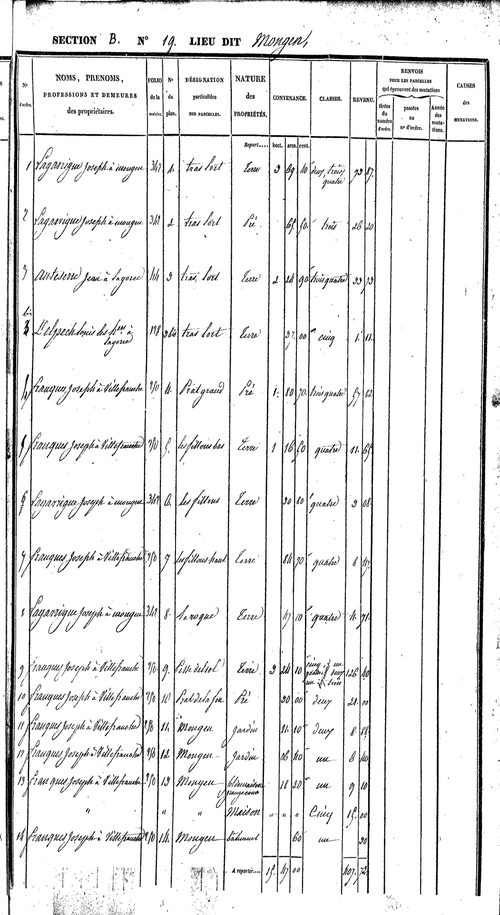 SECTION B. N° 19. LIEU DIT Mongen
N° d'ordre. NOMS, PRENOMS, PROFESSIONS ET DEMEURES des propriétaires. FOLIO de la matrice. N° du plan. DÉSIGNATION particulière DES PARCELLES. NATURE des PROPRIÉTÉS. CONTENANCE. CLASSES. REVENU. RENVOIS POUR LES PARCELLES qui éprouvent des mutations tirées du numéro d'ordre. passées au n° d'ordre. Année des mutations. CAUSES des MUTATIONS.
Report.... hect. ares. cent.
1 Lagarrigue Joseph à mongen 342 1. tras lort Terre 3 69 10 deux, trois, quatre 73 87
2 Lagarrigue Joseph à mongen 342 2 tras lort Pré 65 50 trois 26 20
3 Jean à Lagorce 3 tras lort Terre 2 24 90 trois quatre 33 73
bis
tras lort Terre 37 00 cinq 1. 11
4 franques Joseph à Villefranche 270 4. Prat grand Pré 1. 80 70 trois quatre 57 62
5 franques Joseph à Villefranche 270 5. les fillons bas Terre 1 16 50 quatre 11. 65
6 Lagarrigue Joseph à mongen 342 6. les fillons Terre 30 80 quatre 3 08
7 franques Joseph à Villefranche 270 7 les fillons haut Terre 84 70 quatre 8 47
8 Lagarrigue Joseph à mongen 342 8. Laroque Terre 47 10 quatre 4. 71
9 franques Joseph à Villefranche 270 9. Terre 3 24 10 126 40
10 franques Joseph à Villefranche 270 10 Prat de la fon Pré 30 00 deux 21. 00
11 franques Joseph à Villefranche 270 11. Mongen Jardin 11. 10 deux 8 88
12 franques Joseph à Villefranche 270 12. Mongen Jardin 06 40 un 6 40
13 franques Joseph à Villefranche 270 13 Mongen 18 20 un 9 10
" " " Maison " " " Cinq 15. 00
14 franques Joseph à Villefranche 270 14. Mongen batiment 60 un 30
A reporter.... 15. 47 00 407. 72